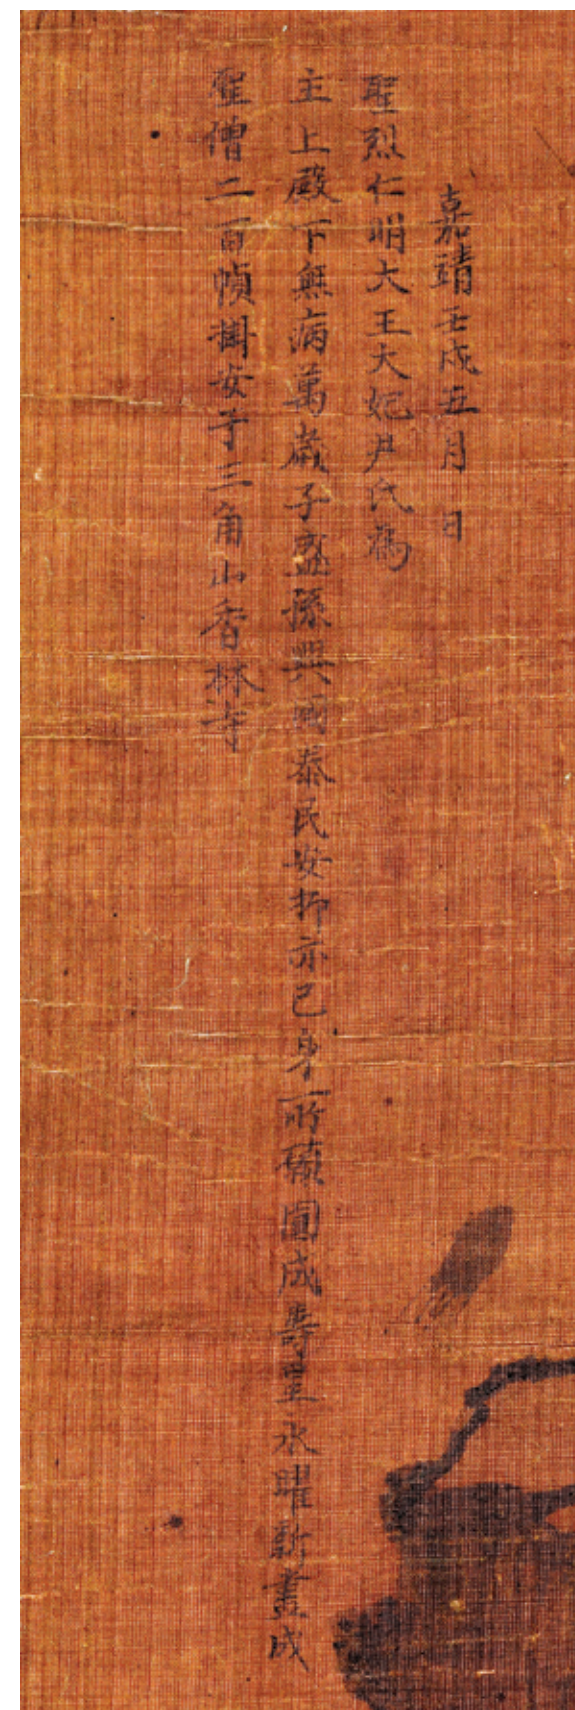 嘉靖壬戌五月 日
聖烈仁明大王大妃尹氏為
主上殿下無病萬歲子盛孫興國泰民安抑亦己身所願圓成壽星永曜新畫成
聖僧二百幀掛安于三角山香林寺